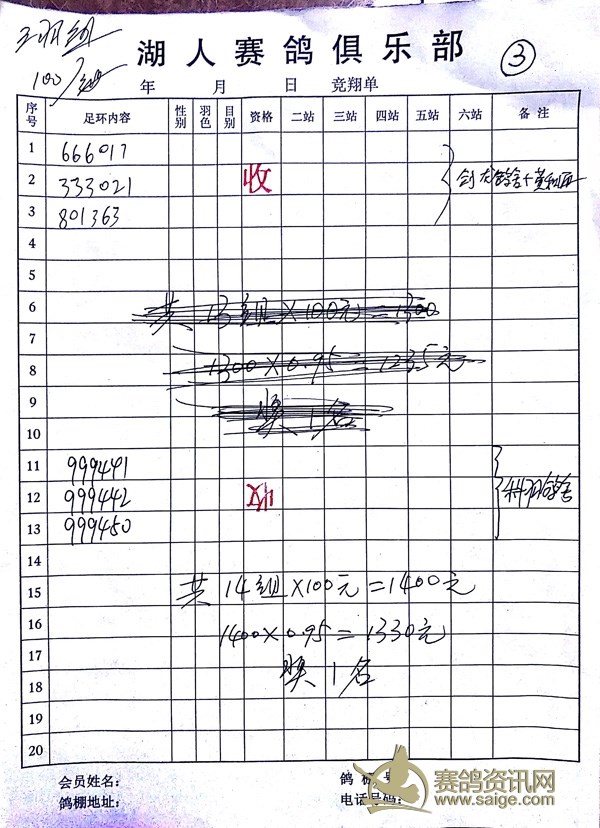 三羽组
100/组
湖人赛鸽俱乐部
③
年 月 日 竞翔单
序号 足环内容 性别 羽色 目别 资格 二站 三站 四站 五站 六站 备注
1 666017
2 333021 收
3 801363
4
5
6 共 13组×100元=1300
7
8 1300×0.95=1235元
9 奖1名
10
11 999441
12 999442 收
13 999450
14
15 共 14组×100元=1400元
16 1400×0.95=1330元
17 奖1名
18
19
20
会员姓名: 鸽棚号:
鸽棚地址: 电话号码:
赛鸽资讯网
www.saige.com